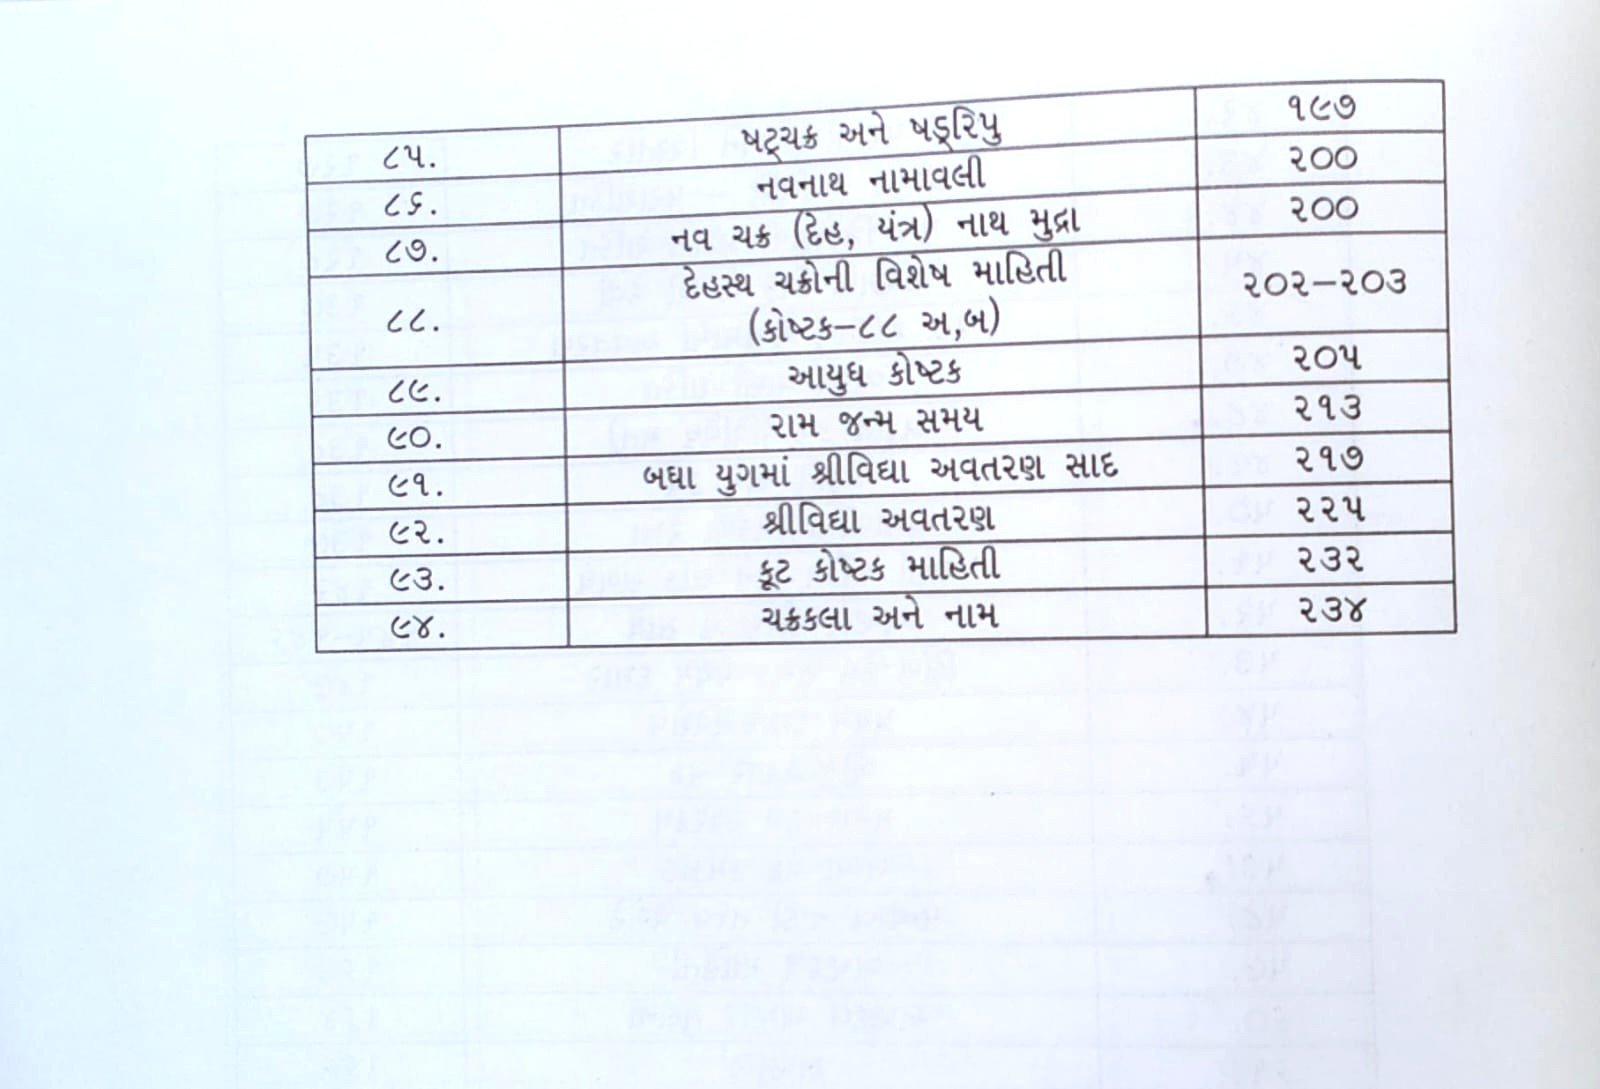 ૮૫. ષટ્ચક્ર અને ષડ્રિપુ ૧૯૭
૮૬. નવનાથ નામાવલી ૨૦૦
૮૭. નવ ચક્ર (દેહ, યંત્ર) નાથ મુદ્રા ૨૦૦
૮૮. દેહસ્થ ચક્રોની વિશેષ માહિતી ૨૦૨–૨૦૩
(કોષ્ટક–૮૮ અ,બ)
૮૯. આયુધ કોષ્ટક ૨૦૫
૯૦. રામ જન્મ સમય ૨૧૩
૯૧. બધા યુગમાં શ્રીવિદ્યા અવતરણ સાદ ૨૧૭
૯૨. શ્રીવિદ્યા અવતરણ ૨૨૫
૯૩. કૂટ કોષ્ટક માહિતી ૨૩૨
૯૪. ચક્રકલા અને નામ ૨૩૪